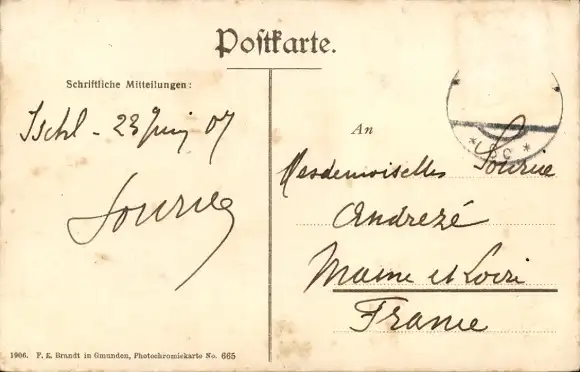 Postkarte.
Schriftliche Mitteilungen:
Ischl - 23 Juin 07
An
Mesdemoiselles Sourice
Andrezé
Maine et Loire
France
1906. F. E. Brandt in Gmunden, Photochromiekarte No. 665